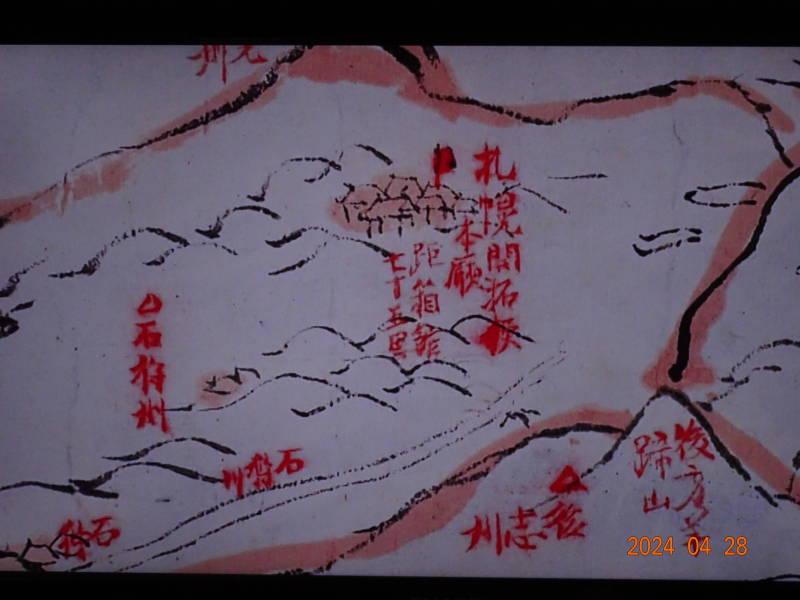 札幌開拓使
本廳
距箱館
七十五里
石狩州
石狩川
石狩
後志州
後方羊
蹄山
2024 04 28